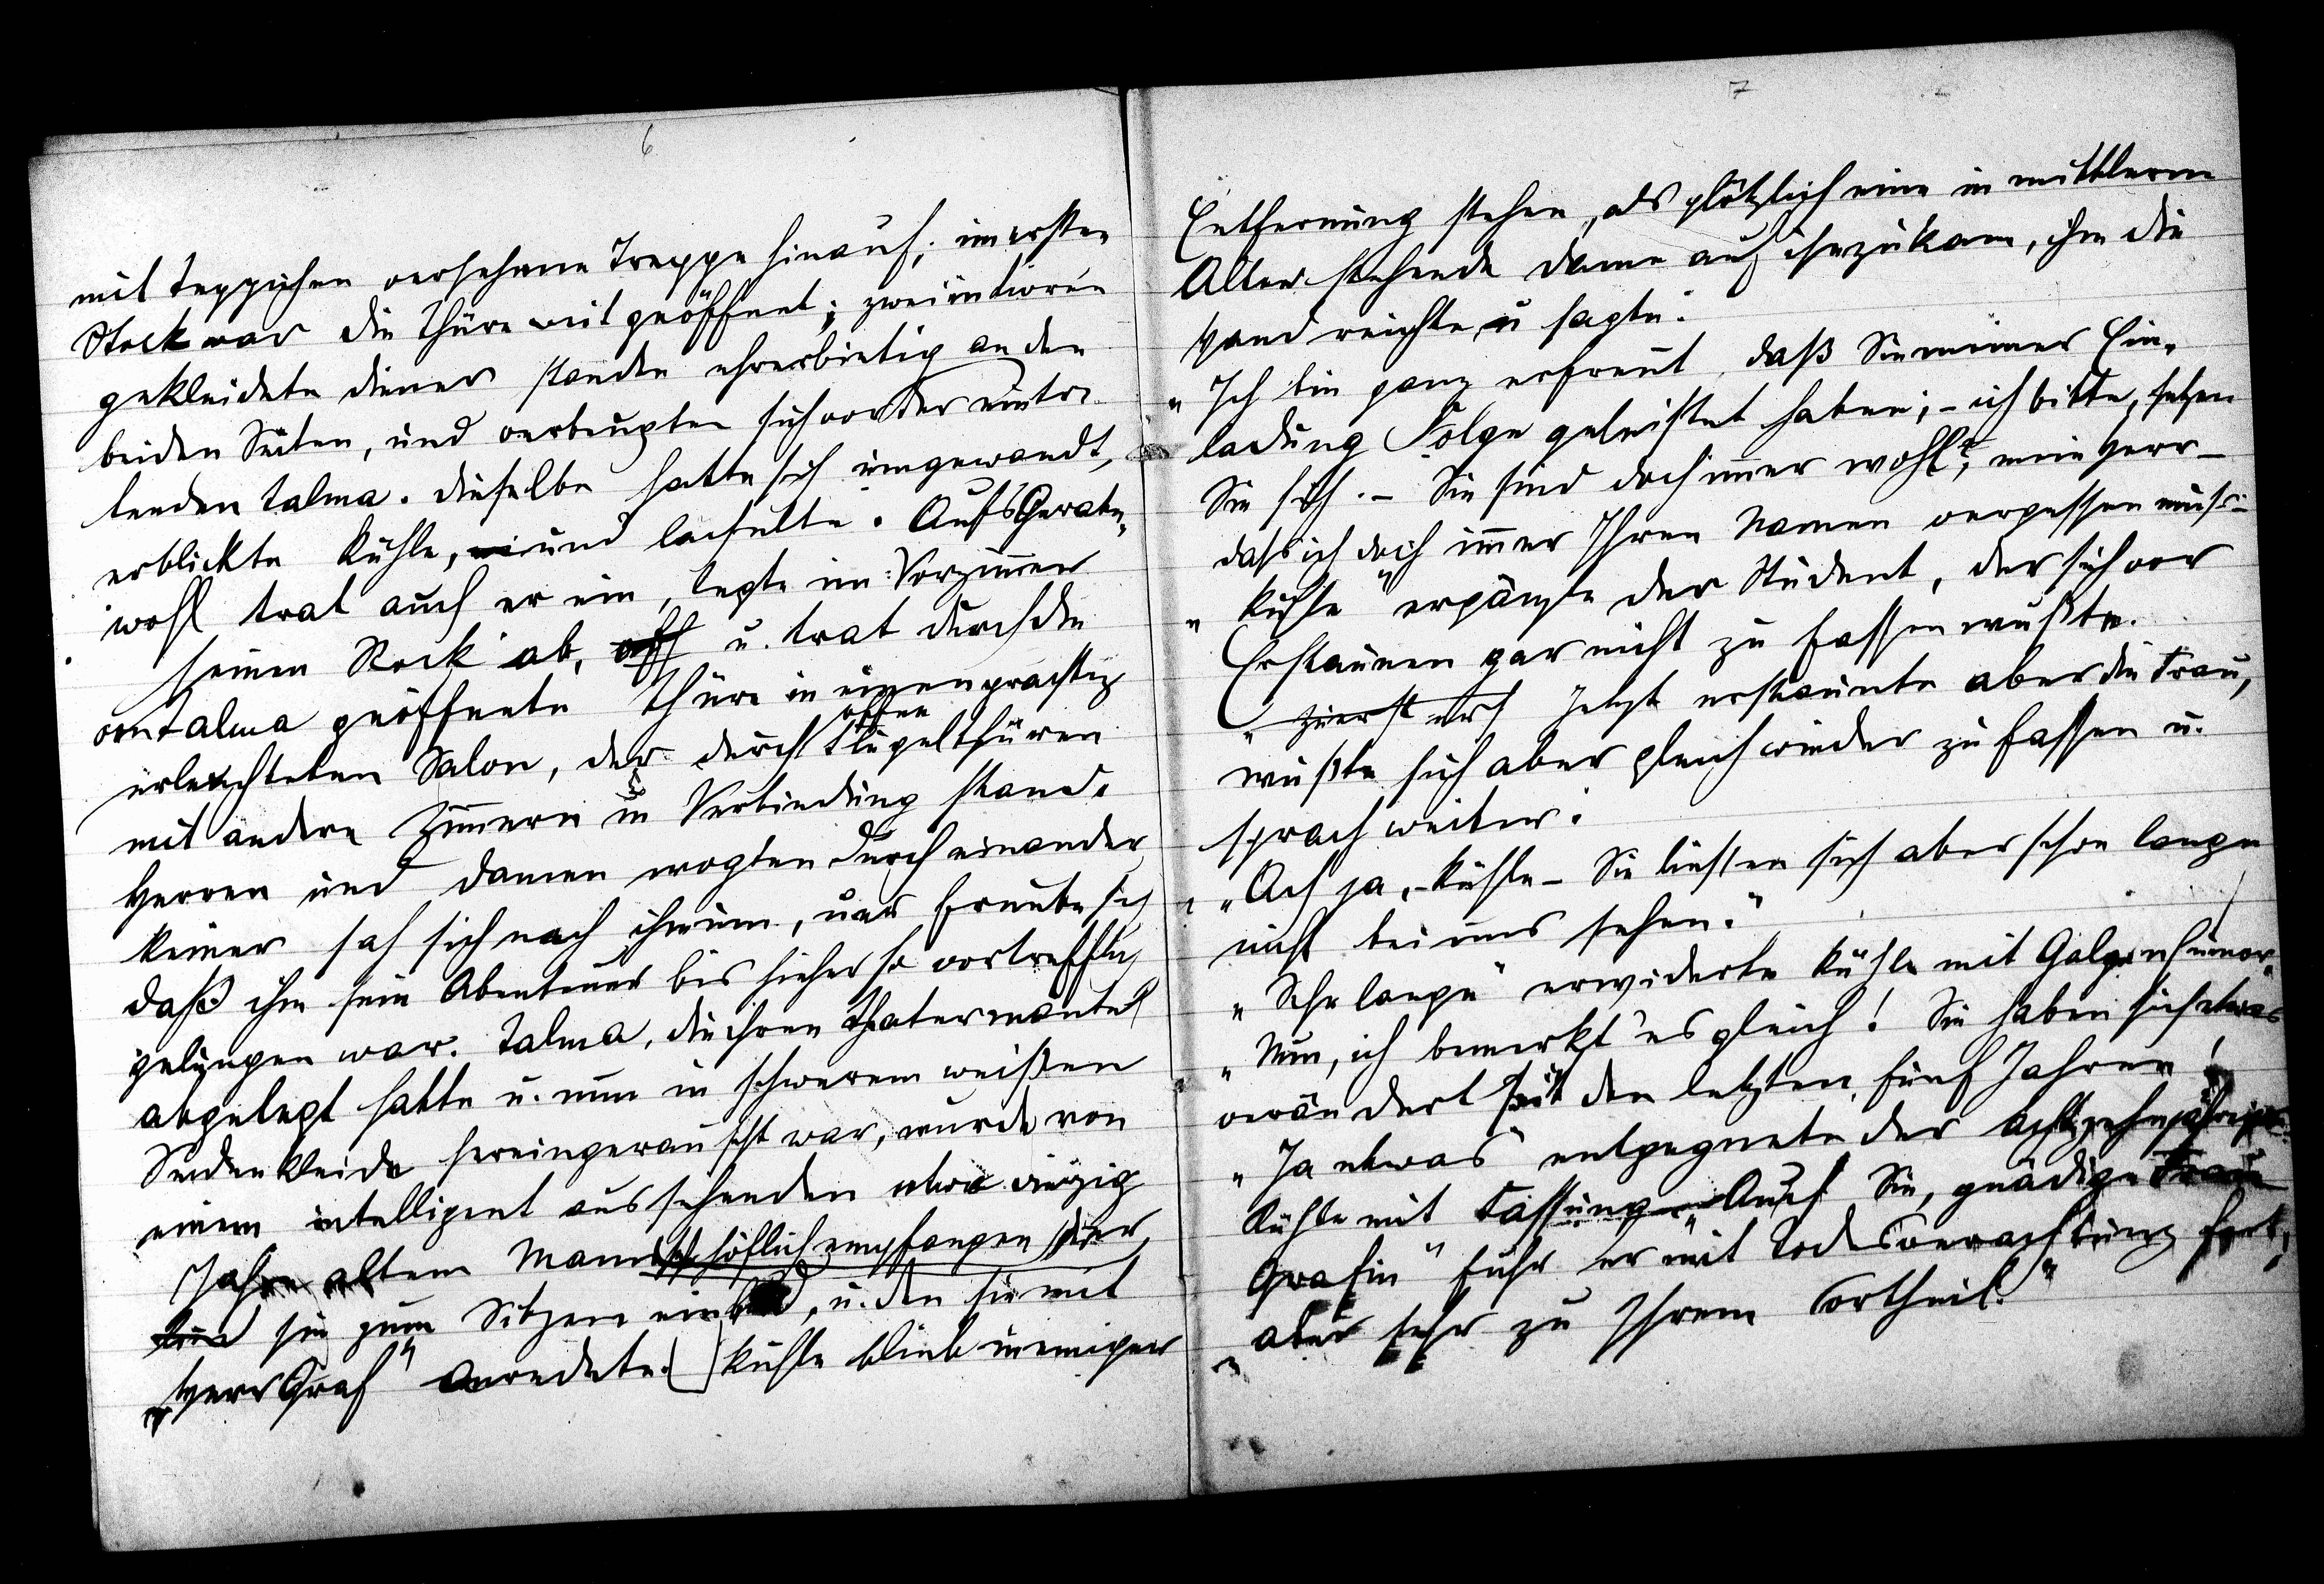 6
mit Teppichen versehene Treppe hinauf; im ersten
Stock war die Thüre weit geöffnet; zwei in Livrée
gekleidete Diener standen ehrerbietig an den
beiden Seiten, und verbeugten sich vor der eintre-
tenden Talma. Dieselbe hatte sich umgewandt,
erblickte Kühle, und lächelte. Aufs Gerate-
wohl trat auch er ein, legte im Vorzimmer
seinen Rock ab, u. trat durch die
von Talma geöffnete Thüre in einen prächtig
erleuchteten Salon, der durch offene Flügelthüren
mit andern Zimmern in Verbindung stand.
Herren und Damen wogten durcheinander
keiner sah sich nach ihm um, und freute sich
daß ihm sein Abenteuer bis hieher so vortrefflich
gelungen war. Talma, die ihren Theatermantel
abgelegt hatte u. nun in schwerem weißen
Seidenkleide hereingerauscht war, wurde von
einem intelligent aussehenden etwa vierzig
Jahre altem Mann höflich empfangen, der
sie zum Sitzen einlud, u. den sie mit
„Herr Graf" anredete. Kühle blieb in einiger
7
Entfernung stehen, als plötzlich eine in mittlerem
Alter stehende Dame auf ihn zukam, ihm die
Hand reichte, u sagte:
„Ich bin ganz erfreut, daß Sie meiner Ein-
ladung Folge geleistet haben; – ich bitte, setzen
Sie sich. – Sie sind doch immer wohl?, mein Herr –
daß ich doch immer Ihren Namen vergessen muß –
„Kühle" ergänzte der Student, der sich vor
Erstaunen gar nicht zu fassen wußte.
„zuerst Jetzt erstaunte aber die Frau,
wußte sich aber gleich wieder zu fassen u.
sprach weiter:
„Ach ja, – Kühle – Sie liessen sich aber schon lange
nicht bei uns sehen."
„Sehr lange" erwiderte Kühle mit Galgenhumor.
„Nun, ich bemerkt' es gleich! Sie haben sich etwas
verändert seit den letzten fünf Jahren!
„Ja etwas" entgegnete der achtzehnjährige
Kühle mit Fassung „Auch Sie, gnädige Frau
Gräfin" fuhr er mit Todesverachtung fort,
„aber sehr zu Ihrem Vortheil."